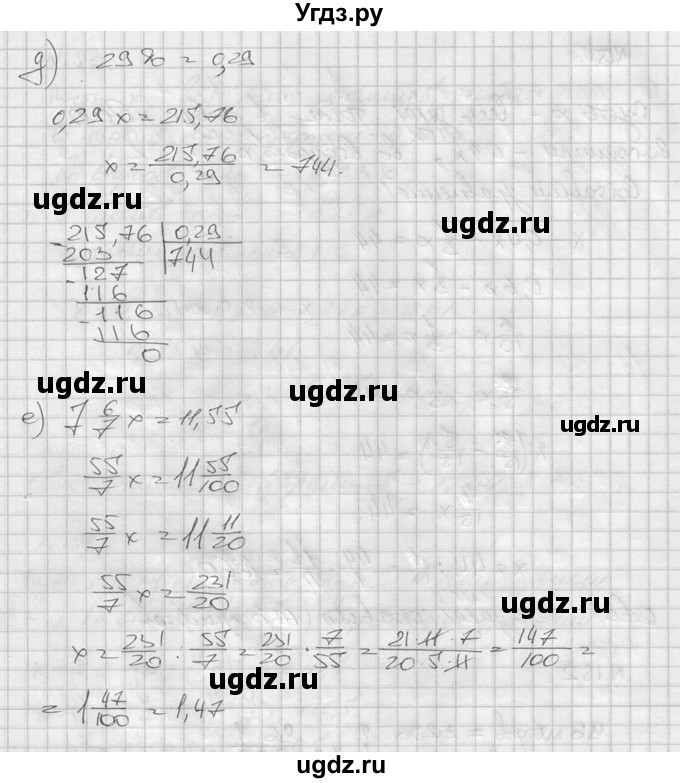 Угдз.ру
д) 29% = 0,29
0,29 x = 215,76
x = 215,76/0,29 = 744.
ugdz.ru
ugdz.ru
- 215,76 | 0,29
203 | 744
- 127
116
- 116
116
0
ugdz.ru
ugdz.ru
е) 7 6/7 x = 11,55
ugdz.ru
55/7 x = 11 55/100
55/7 x = 11 11/20
55/7 x = 231/20
ugdz.ru
x = 231/20 · 55/7 = 231/20 · 7/55 = 21·11·7/20·5·11 = 147/100 =
ugdz.ru
= 1 47/100 = 1,47
ugdz.ru